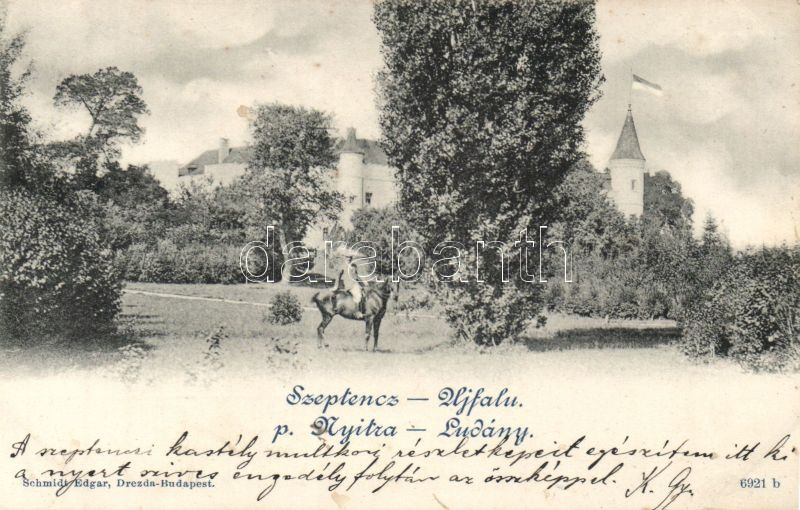 darabanth
Szeptencz — Ujfalu.
p. Nyitra — Ludány.
A szeptenczi kastély multkori részletképeit egészítem itt ki
a nyert szives engedély folytán az összképpel. K. Gy.
Schmidt Edgar, Drezda-Budapest.
6921 b